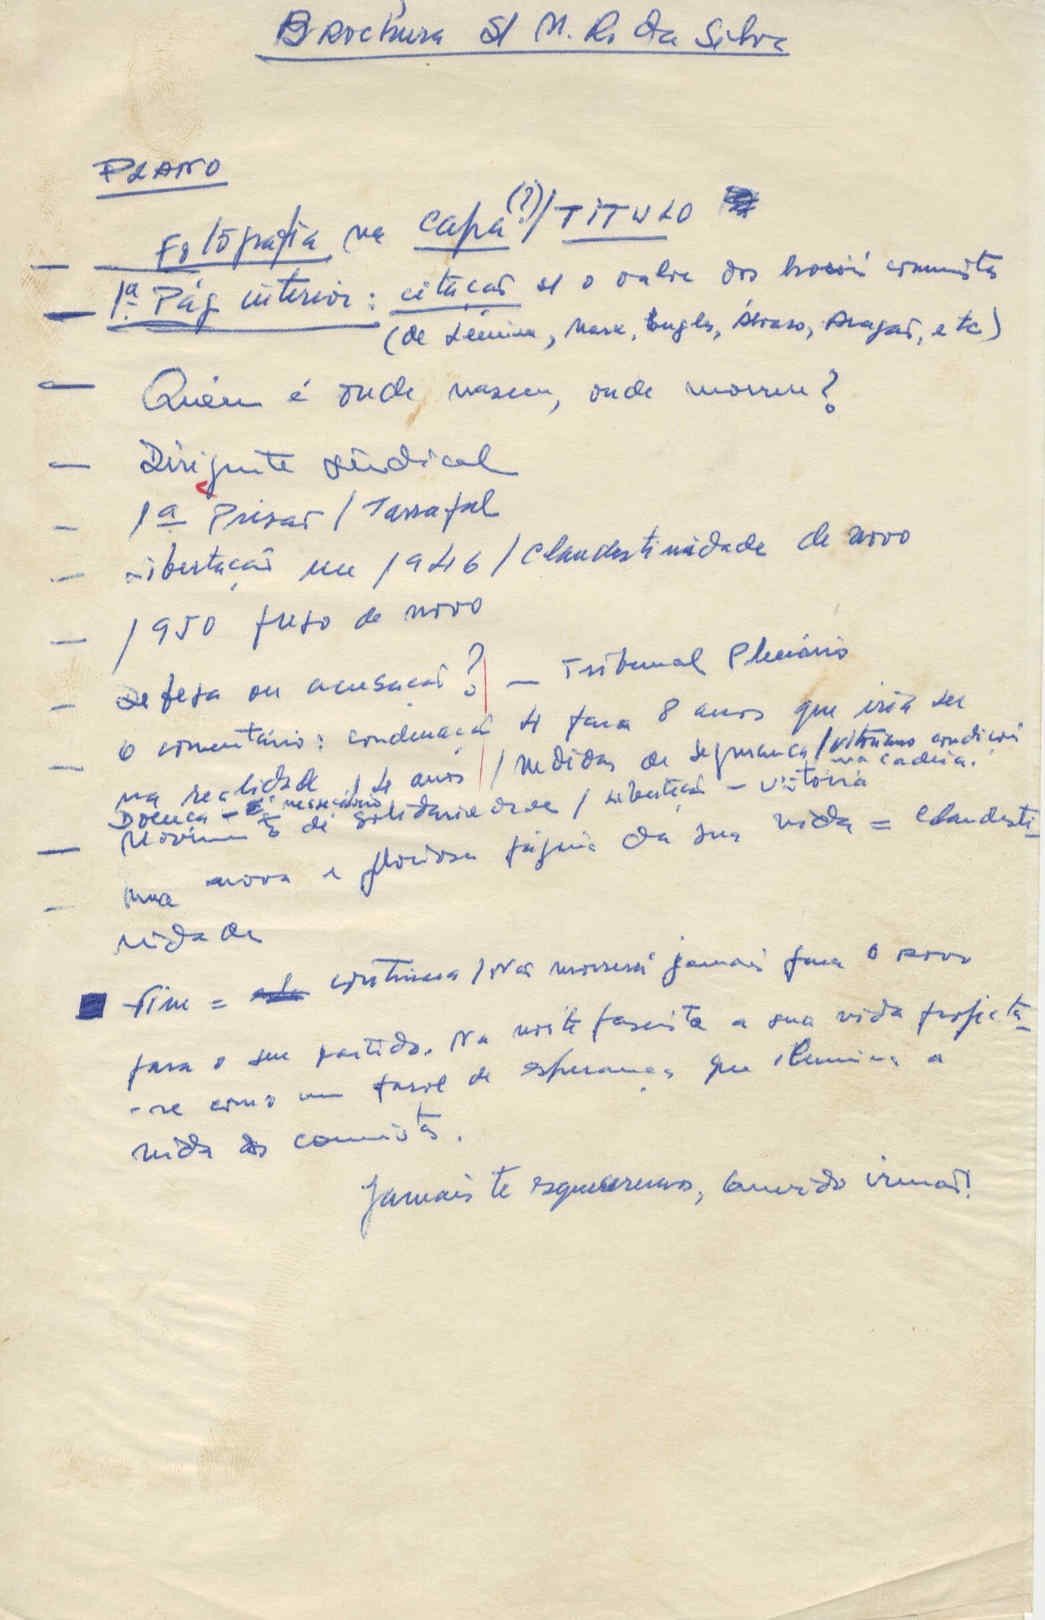 Brochura s/ M. R. da Silva
PLANO
— Fotografia na capa (?) / TITULO
— 1ª Pág interior: citação s/ o valor dos heróis comunistas
(de Lénine, Marx, Engels, Álvaro, Aragão, etc)
— Quem é onde nasceu, onde morreu?
— Dirigente sindical
— 1ª Prisão / Tarrafal
— Libertação em 1946 / Clandestinidade de novo
— 1950 preso de novo
— Defesa ou acusação? — Tribunal Plenário
— O comentário: condenação 4 para 8 anos que iria ser
na realidade 14 anos / medidas de segurança / condições
na cadeia.
Doença –
— Movimento de Solidariedade / libertação – vitória
— uma nova e gloriosa página da sua vida = Clandesti-
nidade
Fim = continua / não morrerá jamais para o povo
para o seu partido. Na noite fascista a sua vida projecta-
-se como um farol de esperança que ilumina a
vida dos comunistas.
Jamais te esqueceremos, querido irmão!